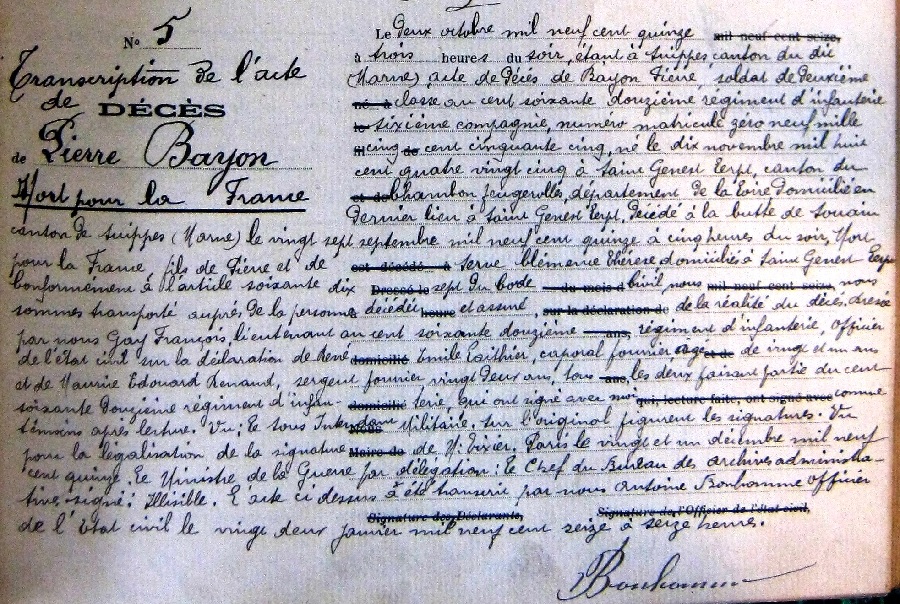 N° 5
Transcription de l'acte
de DÉCÈS
de Pierre Bayon
Mort pour la France
Le deux octobre mil neuf cent quinze mil neuf cent seize,
à trois heures du soir, étant à Suippes canton du dit
(Marne) acte de décès de Bayon Pierre, soldat de deuxième
né à classe au cent soixante douzième régiment d'infanterie
le sixième compagnie, numéro matricule zéro neuf mille
cinq de cent cinquante cinq, né le dix novembre mil huit
cent quatre vingt cinq à Saint Genest Lerpt, canton du
et de Chambon Feugerolles, département de la Loire domicilié en
dernier lieu à Saint Genest Lerpt, décédé à la butte de Souain
canton de Suippes (Marne) le vingt sept septembre mil neuf cent quinze à cinq heures du soir, Mort
pour la France, fils de Pierre et de est décédé à Serve Clémence Thérèse domiciliés à Saint Genest Lerpt
Conformément à l'article soixante dix Dressé le sept du Code du mois d civil nous mil neuf cent seize, nous
sommes transporté auprès de la personne décédée heure et assuré sur la déclaration de de la réalité du décès, dressé
par nous Gay François, lieutenant au cent soixante douzième ans, régiment d'infanterie, officier
de l'état civil sur la déclaration de René domicilié Emile caporal fourrier âgé et de de vingt et un ans
et de Maurice Edouard Renaud, sergent fourrier, vingt deux ans, tous ans, les deux faisant partie du cent
soixante douzième régiment d'infan- domicilié terie, qui ont signé avec moi qui, lecture faite, ont signé avec comme
témoins après lecture. Vu: le sous Intendant Nous Militaire, sur l'original figurent les signatures. Vu
pour la légalisation de la signature Maire de de M. Vivier. Paris le vingt et un décembre mil neuf
cent quinze. Le Ministre de la Guerre par délégation: le Chef du Bureau des archives administra-
tive signé: Illisible. L'acte ci dessus a été transcrit par nous Antoine Bonhomme officier
Signature des Déclarants, Signature de l'Officier de l'état civil,
de l'Etat civil le vingt deux janvier mil neuf cent seize à seize heures.
Bonhomme